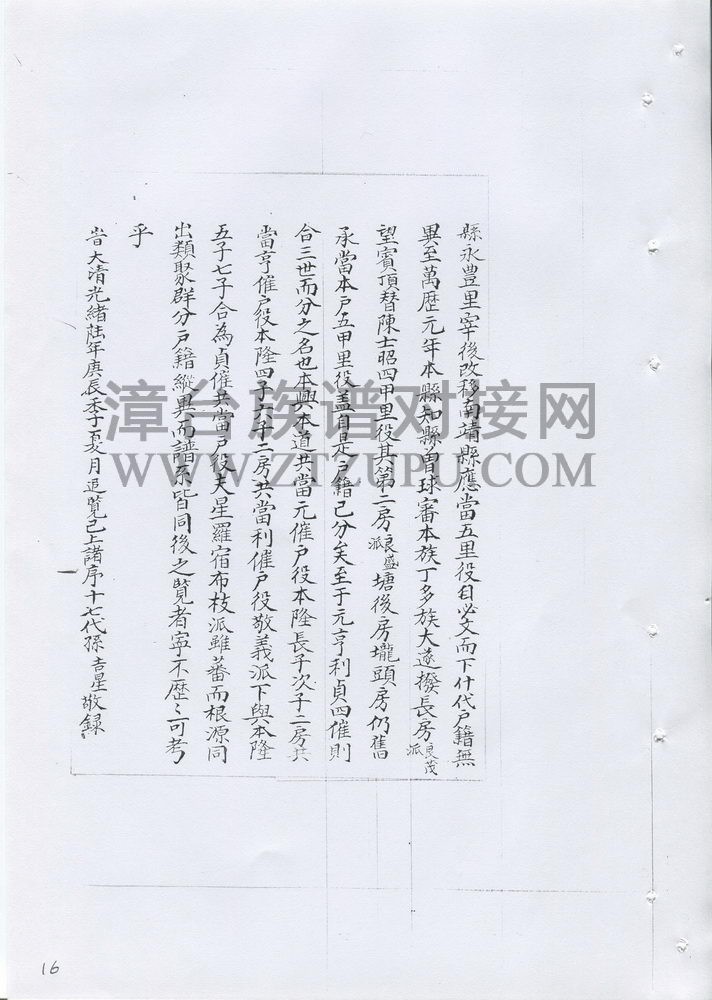 縣永豊里寧後改移南靖縣應當五里役自必文而下什代戶籍無
異至萬歷元年本縣知縣曾球審本族丁多族大遂撥長房良茂派
望賓頂替陳士昭四甲里役其第二房良盛派塘後房壠頭房仍舊
承當本戶五甲里役盖自是戶籍已分矣至于元亨利貞四催則
合三世而分之名也本興本道共當元催戶役本隆長子次子二房共
當亨催戶役本隆四子六子二房共當利催戶役敬義派下與本隆
五子七子合為貞催共當戶役夫星羅宿布枝派雖蕃而根源同
出類聚群分戶籍縱異而譜系皆同後之覧者寧不歷〻可考
乎
旹大清光緒陸年庚辰季夏月追覧已上諸序十七代孫吉星敬録
漳台族谱对接网
WWW.ZTZUPU.COM
16